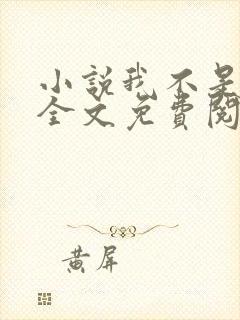 小說我不是
全文免費閱
黃屏